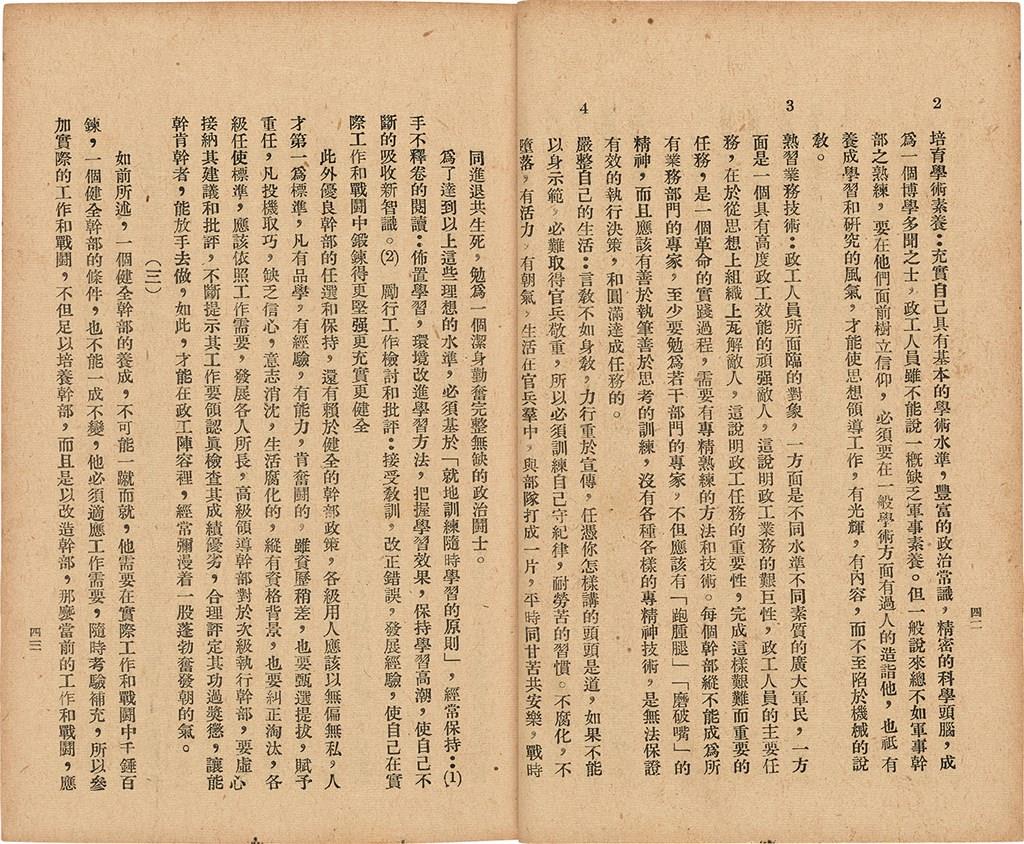 四二
2 培育學術素養：充實自己具有基本的學術水準，豐富的政治常識，精密的科學頭腦，成
為一個博學多聞之士，政工人員雖不能說一槪缺乏軍事素養。但一般說來總不如軍事幹
部之熟練，要在他們面前樹立信仰，必須要在一般學術方面有過人的造詣他，也祗有
養成學習和研究的風氣，才能使思想領導工作，有光輝，有內容，而不至陷於機械的說
敎。
3 熟習業務技術：政工人員所面臨的對象，一方面是不同水準不同素質的廣大軍民，一方
面是一個具有高度政工效能的頑强敵人，這說明政工業務的艱巨性，政工人員的主要任
務，在於從思想上組織上瓦解敵人，這說明政工任務的重要性，完成這樣艱難而重要的
任務，是一個革命的實踐過程，需要有專精熟練的方法和技術。每個幹部縱不能成爲所
有業務部門的專家，至少要勉爲若干部門的專家，不但應該有「跑腫腿」「磨破嘴」的
精神，而且應該有善於執筆善於思考的訓練，沒有各種各樣的專精神技術，是無法保證
有效的執行決策，和圓滿達成任務的。
4 嚴整自己的生活：言敎不如身敎，力行重於宣傳，任憑你怎樣講的頭頭是道，如果不能
以身示範，必難取得官兵敬重，所以必須訓練自己守紀律，耐勞苦的習慣。不腐化，不
墮落，有活力，有朝氣，生活在官兵羣中，與部隊打成一片，平時同甘苦共安樂，戰時
同進退共生死，勉爲一個潔身勤奮完整無缺的政治鬪士。
爲了達到以上這些理想的水準，必須基於「就地訓練隨時學習的原則」，經常保持：(1)
手不釋卷的閱讀：佈置學習，環境改進學習方法，把握學習效果，保持學習高潮，使自己不
斷的吸收新智識。(2) 勵行工作檢討和批評：接受敎訓，改正錯誤，發展經驗，使自己在實
際工作和戰鬪中鍛鍊得更堅强更充實更健全
此外優良幹部的任選和保持，還有賴於健全的幹部政策，各級用人應該以無偏無私，人
才第一爲標準，凡有品學，有經驗，有能力，肯奮鬪的，雖資歷稍差，也要甄選提拔，賦予
重任，凡投機取巧，缺乏信心，意志消沈，生活腐化的，縱有資格背景，也要糾正淘汰，各
級任使標準，應該依照工作需要，發展各人所長，高級領導幹部對於次級執行幹部，要虛心
接納其建議和批評，不斷提示其工作要領認眞檢查其成績優劣，合理評定其功過奬懲，讓能
幹肯幹者，能放手去做，如此，才能在政工陣容裡，經常彌漫着一股蓬勃奮發朝的氣。
（三）
如前所述，一個健全幹部的養成，不可能一蹴而就，他需要在實際工作和戰鬪中千錘百
鍊，一個健全幹部的條件，也不能一成不變，他必須適應工作需要，隨時考驗補充，所以參
加實際的工作和戰鬪，不但足以培養幹部，而且是以改造幹部，那麽當前的工作和戰鬪，應
四三